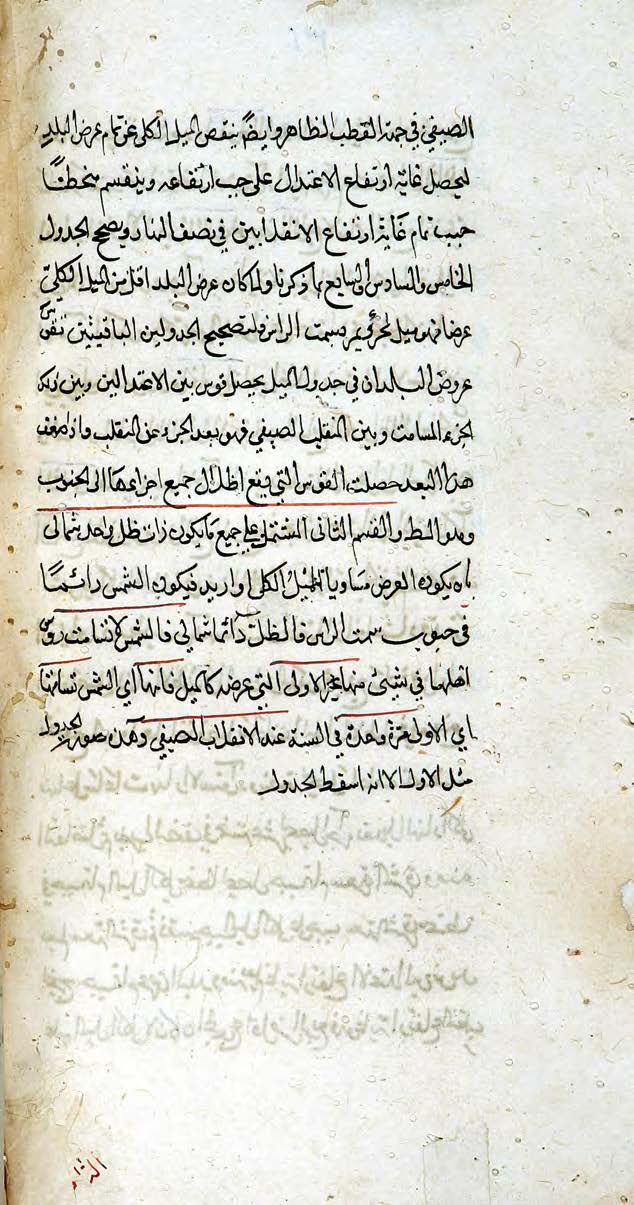 الصيفي في جهة القطب الظاهر وايضا ينقص الميل الكلي عن تمام عرض البلد
ليحصل غاية ارتفاع الاعتدال على جيب ارتفاعه وينقسم منحطا
جيب تمام غاية ارتفاع الانقلابين في نصف النهار ويصح الجدول
الخامس والسادس الى السابع بما ذكرنا ولما كان عرض البلد اقل من الميل الكلي
عرضا فهو ميل لجزئي يمر بسمت الراس ولتصحيح الجدولين الباقيتين تقوس
عروض البلدان في جدول الميل يحصل قوس بين الاعتدالين وبين ذلك
الجزء المسامت وبين المنقلب الصيفي فهو بعد الجزء عن المنقلب واذا ضعف
هذا البعد حصلت القوس التي يقع اظلال جميع اجزائها الى الجنوب
وهو المط والقسم الثاني المشتمل على جميع ما يكون ذات ظل واحد شمالي
بان يكون العرض مساويا للميل الكلي او ازيد فيكون الشمس دائما
في جنوب سمت الراس فالظل دائما شمالي فالشمس لا تسامت رؤس
اهلها في شيئ منها غير الاولى التي عرضه كالميل فانها اي الشمس تسامتها
اي الاولى مرة واحدة في السنة عند الانقلاب الصيفي وهذه صورة الجدول
مثل الاول الا انه اسقط الجدول